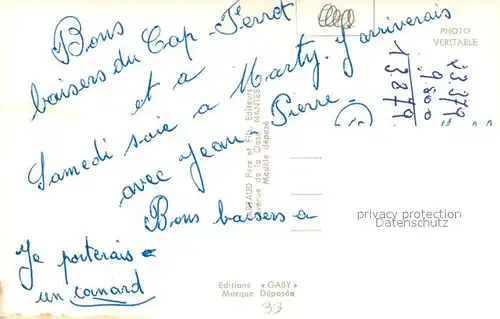 Bons
baisers du Cap-Ferret
et a
Samedi soir a Marty. J'arriverais
avec Jean-Pierre.
Bons baisers a
Je porterais
un canard
PHOTO
VERITABLE
23.379
9 800
13879
ARTAUD Père et Fils, Editeurs
avenue de la Close NANTES
Modèle déposé
privacy protection
Datenschutz
Editions « GABY »
Marque Déposée
33